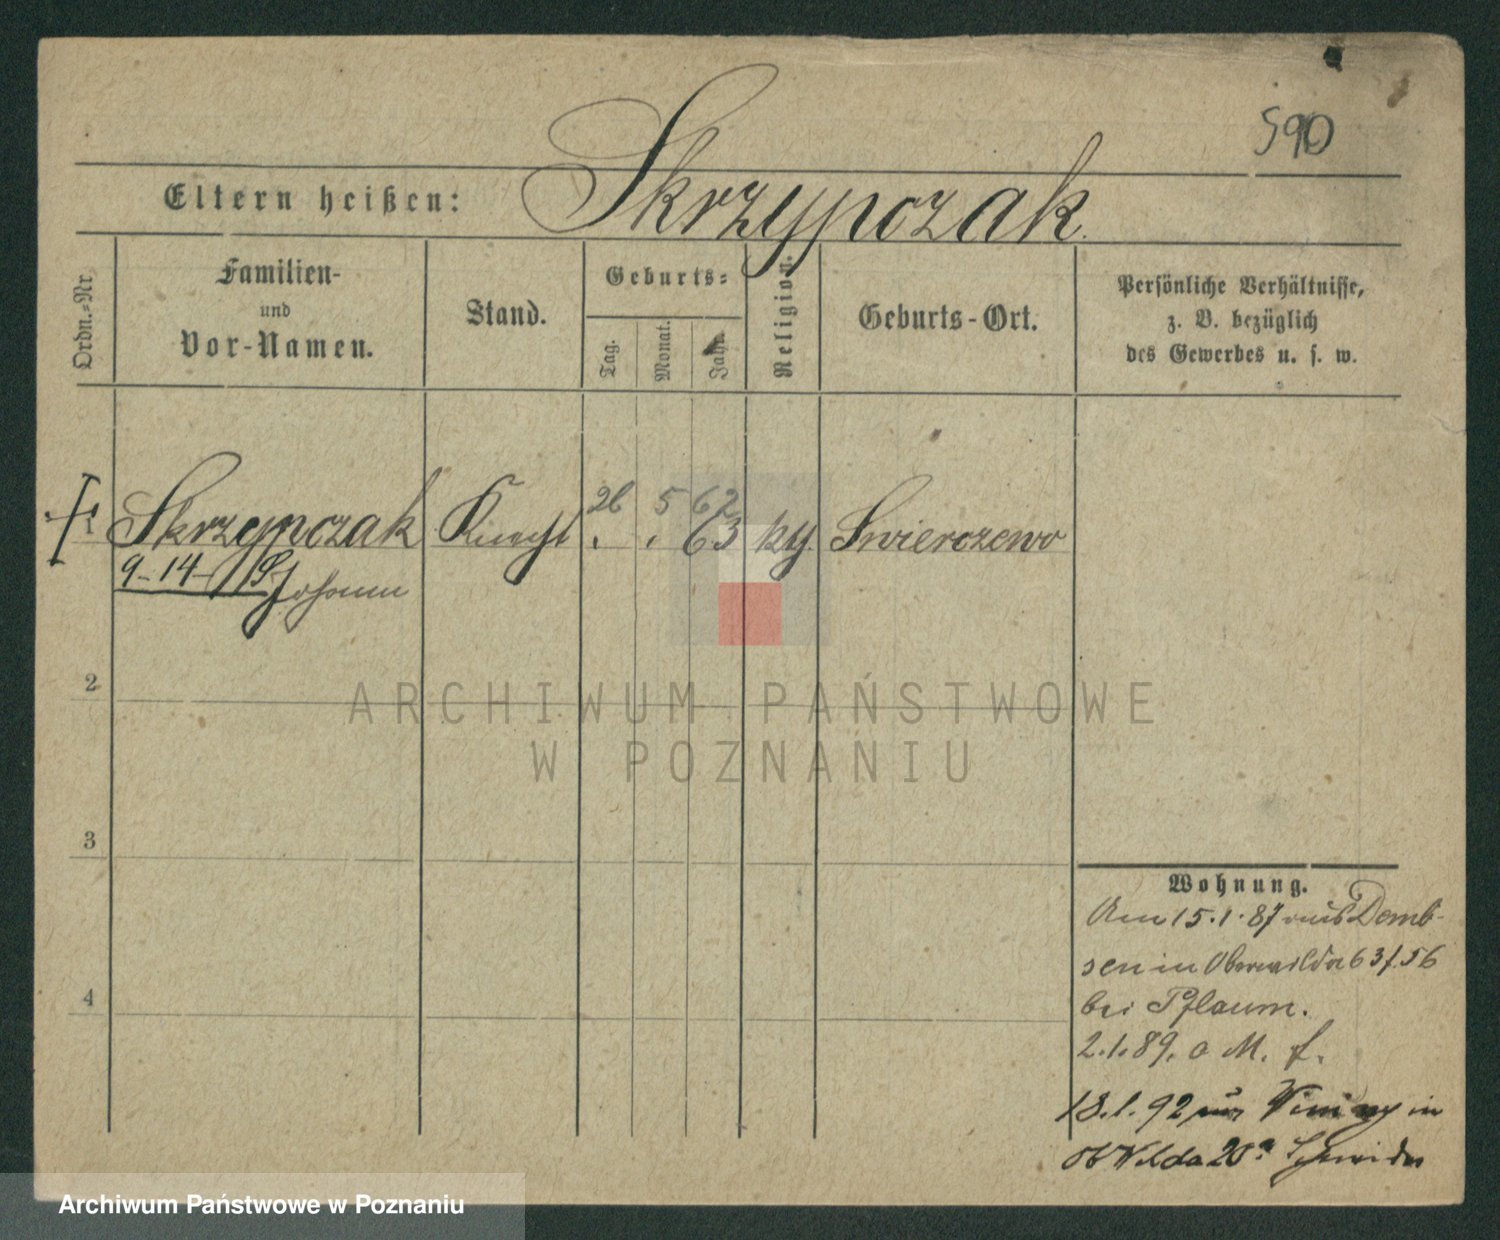 590
Eltern heißen: Skrzypczak
Ordn.-Nr.
Familien-
und
Vor-Namen.
Stand.
Geburts-
Tag.
Monat.
Jahr.
Religion.
Geburts-Ort.
Persönliche Verhältnisse,
z. B. bezüglich
des Gewerbes u. s. w.
26 5 62
1 Skrzypczak Knecht . . 63 kg. Swierczewo
9-14-
Johann
2
ARCHIWUM PAŃSTWOWE
W POZNANIU
3
Wohnung.
Am 15.1.87 aus Demb-
sen in Oberwilda 63 f. 56
bei Pflaum.
2.1.89. a M. f.
18.1.92 aus in
ob Wilda 20a Schneider
4
Archiwum Państwowe w Poznaniu